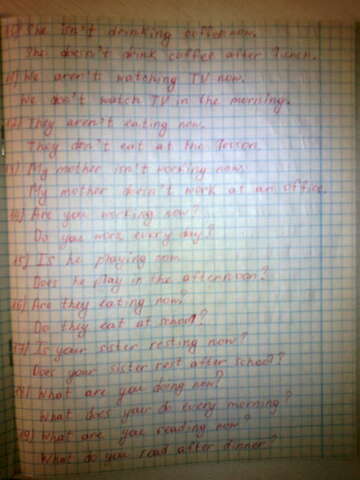 10) She isn't drinking coffee now.
She doesn't drink coffee after lunch.
11) We aren't watching TV now.
We don't watch TV in the morning.
12) They aren't eating now.
They don't eat at the lesson.
13) My mother isn't working now.
My mother doesn't work at an office.
14) Are you working now?
Do you work every day?
15) Is he playing now
Does he play in the afternoon?
16) Are they eating now?
Do they eat at school?
17) Is your sister resting now?
Does your sister rest after school?
18) What are you doing now?
What does your do every morning?
19) What are you reading now?
What do you read after dinner?